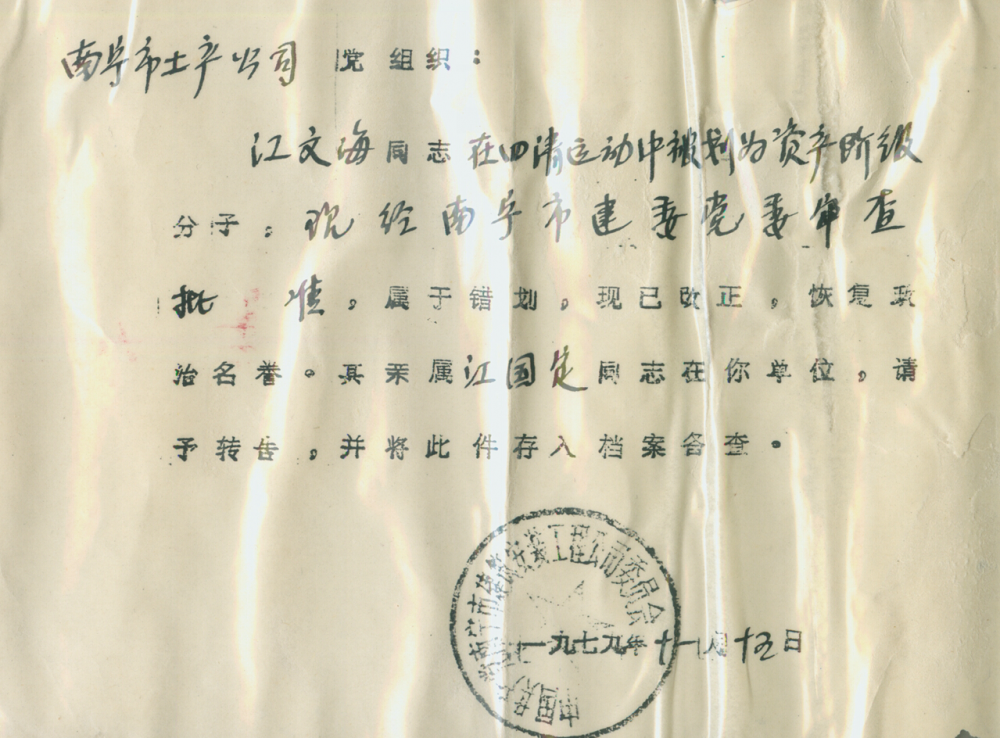 南宁市土产公司 党组织：
江文海同志在四清运动中被划为资产阶级
分子，现经南宁市建委党委审查
批准，属于错划，现已改正，恢复政
治名誉。其亲属江国定同志在你单位，请
予转告，并将此件存入档案备查。
中国共产党南宁市建筑安装工程公司委员会
一九七九年十一月十五日